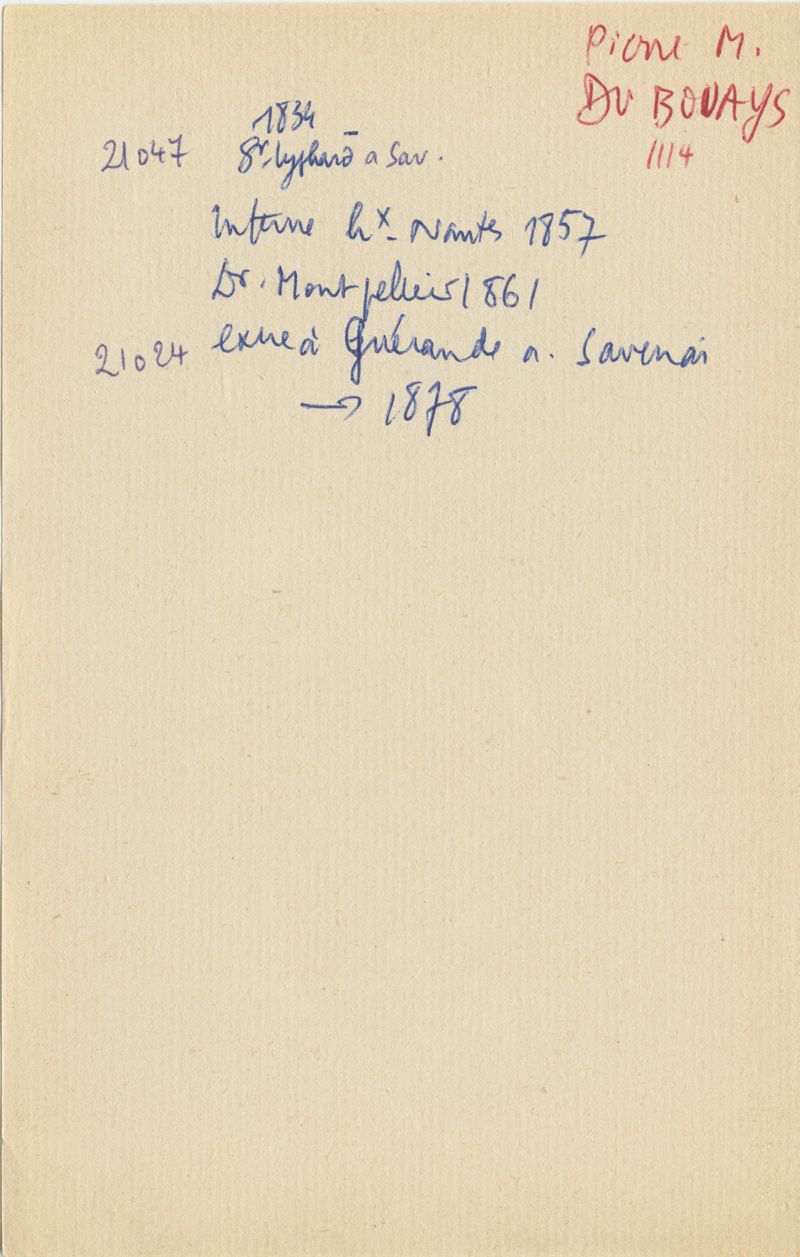 Pierre M.
DU BOUAYS
1114
1834
21047 St-Lyphard a Sav.
Interne hx- Nantes 1857
Dr. Montpellier 1861
21024 exce à Guérande a. Savenai
→ 1878